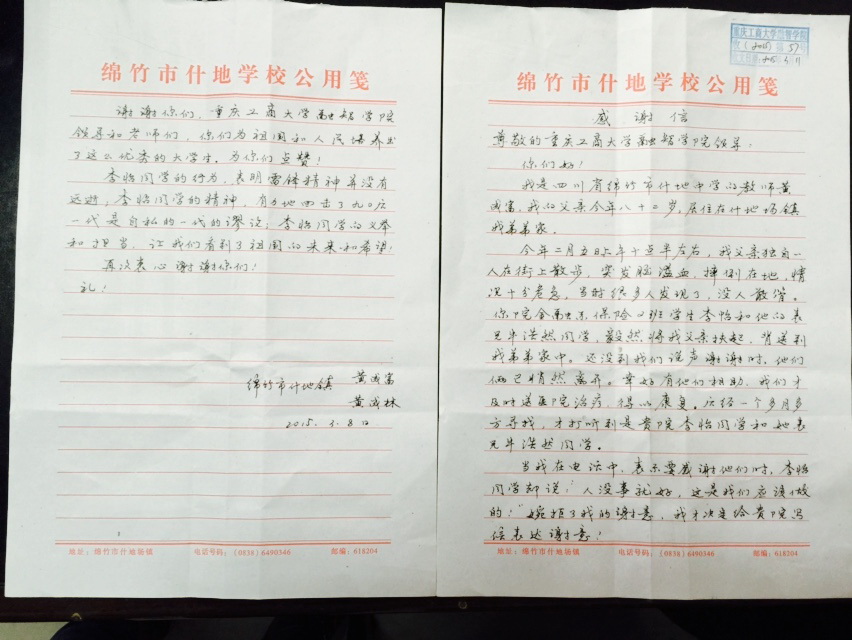 重庆工商大学融智学院
绵竹市什地学校公用笺
感谢信
尊敬的重庆工商大学融智学院领导:
你们好!
我是四川省绵竹市什地中学的教师黄
成富,我的父亲今年八十二岁,居住在什地场镇
我弟弟家.
今年二月五日上午十点半左右,我父亲独自一
人在街上散步,突发脑溢血,摔倒在地,情
况十分危急,当时很多人发现了,没人敢管。
你院金融系保险二班学生李怡和他的表
兄牛浩然同学,毅然将我父亲扶起,背送到
我弟弟家中。还没到我们说声谢谢时,他们
俩已悄然离开。幸好有他们相助,我们才
及时送医院治疗,得以康复。后经一个多月多
方寻找,才打听到是贵院李怡同学和她表
兄牛浩然同学。
当我在电话中,表示要感谢他们时,李怡
同学却说:"人没事就好,这是我们应该做
的!"婉拒了我的谢意,我才决定给贵院写
信表达谢意!
地址:绵竹市什地场镇 电话号码:(0838)6490346 邮编:618204
绵竹市什地学校公用笺
谢谢你们,重庆工商大学融智学院
领导和老师们,你们为祖国和人民培养出
了这么优秀的大学生,为你们点赞!
李怡同学的行为,表明雷锋精神并没有
远逝;李怡同学的精神,有力地回击了九〇后
一代是自私的一代的谬说;李怡同学的义举
和担当,让我们看到了祖国的未来和希望!
再次衷心谢谢你们!
礼!
绵竹市什地镇 黄成富
黄成林
2015.3.8日
地址:绵竹市什地场镇 电话号码:(0838)6490346 邮编:618204